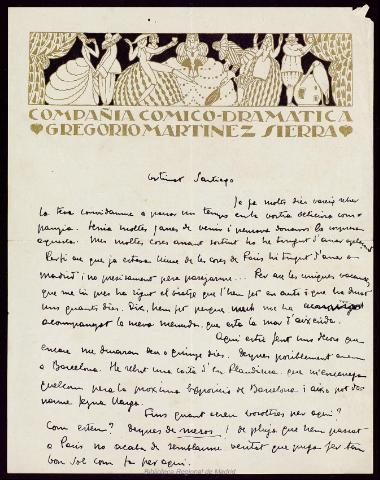 COMPAÑIA COMICO-DRAMATICA
GREGORIO MARTINEZ SIERRA
Estimat Santiago
Ja fa moltes dies vareig rebre
la teva convidanme a passar un temps en la vostra deliciosa com-
panyia. Tenia moltes ganes de venir i pensava donarvos la sorpresa
aquesta. Mes moltes coses anant sortint ho he tingut d'anar
Perfi ara que ja estava lliure de les coses de Paris, hi tingut d'anar a
Madrid i no precisament per passejarme... Per ara les uniques vacances
que me les pres ha sigut el viatge que l'hem fet en auto i que ha durat
uns quants dies. Dic, hem fet perque me ha
acompanyat la meva menuda, que esta la mar d'aixerida.
Aqui estre fent uns decors que
encare me duraran deu o quinze dies. Despres posiblement anem
a Barcelona. He rebut una carta d'en Plandiura que m'encarrega
quelcom pera la proxima Exposicio de Barcelona i aixo pot do-
narme feyna llarga.
Fins quant sereu vosaltres per aqui?
Com esteu? Despres de mesos de pluja que hem passat
a Paris no acaba de semblarme veritat que puga fer tan
bon sol com fa per aqui.
Biblioteca Regional de Madrid